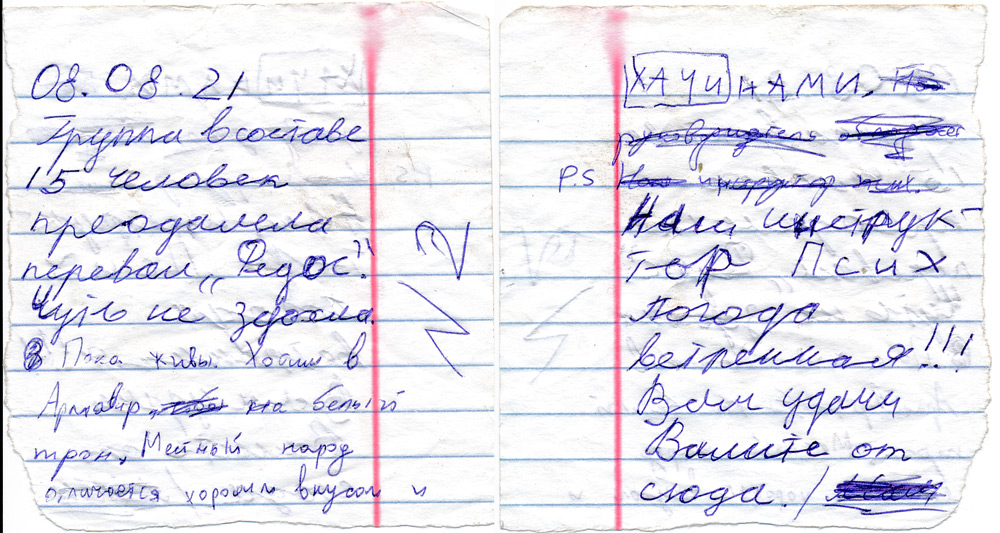 08.08.21
Группа в составе
15 человек
преодалела
перевал „Федос"!
Чуть не здохла.
Пока живы. Хотим в
Армавир, на белый
трон. Местный народ
отличается хорошим вкусом и
ХАЧИНАМИ.
руководитель
P.S инструктор псих.
Наш инструк-
тор Псих
Погода
ветренная!!!
Вам удачи
Валите от
сюда. /